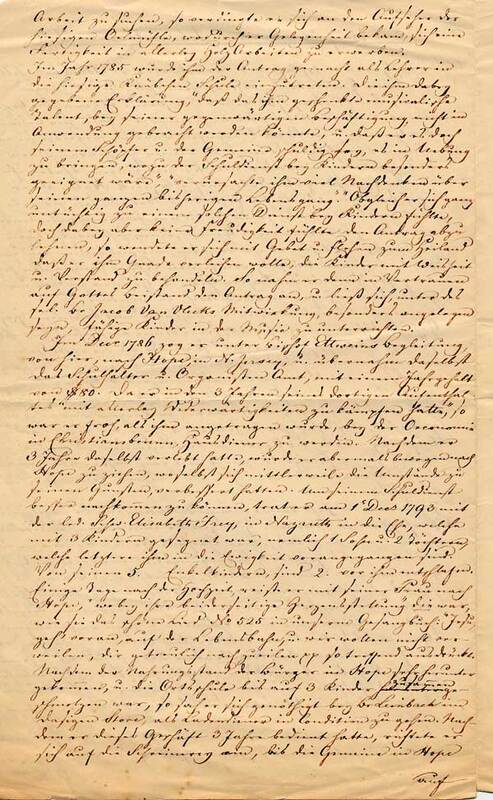 Arbeit zu suchen, so verdingte er sich an den Aufseher der
hiesigen Oelmühle, wo der Gelegenheit bekam, sich eine
Fertigkeit in allerley Holz Arbeiten zu erwerben.
Im Jahr 1785 wurde ihm der Antrag gemacht als Lehrer in
die hiesige Knäbchen Schule einzutreten. Die ihm dabey
gegebene Erklärung, "daß das ihm geschenkte musicalische
Talent, bey seiner gegenwärtigen Beschäftigung, nicht in
Anwendung gebracht werden könnte, u. daß er es doch
seinem Schöpfer u. der Gemeine schuldig sey, es in Uebung
zu bringen, wozu der Schuldienst bey Kindern besonders
geeignet wäre" verursachte ihm viel Nachdenken über
seinen ganzen bisherigen Lebensgang. Obgleich er sich ganz
untüchtig zu einem solchen Dienst bey Kindern fühlte,
doch dabey aber keine Freudigkeit fühlte den Antrag abzu
lehnen, so wendete er sich mit Gebet u. Flehen zum Heiland
daß er ihm Gnade verleihen wolle, die Kinder mit Weisheit
u. Verstand zu behandeln. So nahm er denn im Vertrauen
auf Gottes Beistand den Antrag an, u. ließ sich unter des
sel. Br. Jacob Van Vlecks Mitwirkung, besonders angelegen
seyn, fähige Kinder in der Music zu unterrichten.
Im Decr 1786 zog er unter Bischof Ettweins Begleitung,
von hier, nach Hope, in N. Jersey, u. übernahm daselbst
das Schulhalter u. Organisten Amt, mit einem Jahrgehalt
von Da er in den 3 Jahren seines dortigen Aufenthal
tes mit allerley Widerwärtigkeiten zu kämpfen hatte, so
war er froh als ihm angetragen wurde, bey der Oeconomie
in Christiansbrunn, Hausdiener zu werden. Nachdem er
3 Jahre daselbst verlebt hatte, wurde er abermals bewogen nach
Hope zu ziehen, woselbst sich mittlerweile die Umstände zu
seinen Gunsten, verbessert hatten. Um seinem Schuldienst
besser nachkommen zu können, trat er am 1 Decr 1793 mit
der led. Schw. Elisabeth Frey, in Nazareth in die Ehe, welche
mit 3 Kindern gesegnet war, nämlich 1 Sohn u. 2 Töchtern,
welche letztere ihm in die Ewigkeit vorangegangen sind.
Von seinen 5. Enkelkindern, sind 2. vor ihm entschlafen.
Einige Tage nach der Hochzeit, reiste er mit seiner Frau nach
Hope, wobey ihre beiderseitige Herzensstellung die war,
wie sie das schöne Lied No 525 in unserm Gesangbuch: Jesu
geh voran, auf der Lebensbahn, u. wir wollen nicht ver-
weilen, dir getreulich nachzueilen pp so treffend ausdrückt.
Nachdem der Nahrungsstand der Bürger in Hope, sehr herunter
gekommen, u. die Ortsschule bis auf 3 Kinder zusammen
geschmolzen war, so sah er sich genöthigt bey Br. Leinbach im
dasigen Store, als Ladendiener in Condition zu gehen. Nach
dem er dieses Geschäft 3 Jahre bedient hatte, richtete er
sich auf die Schreinerey ein, bis die Gemeine in Hope
auf